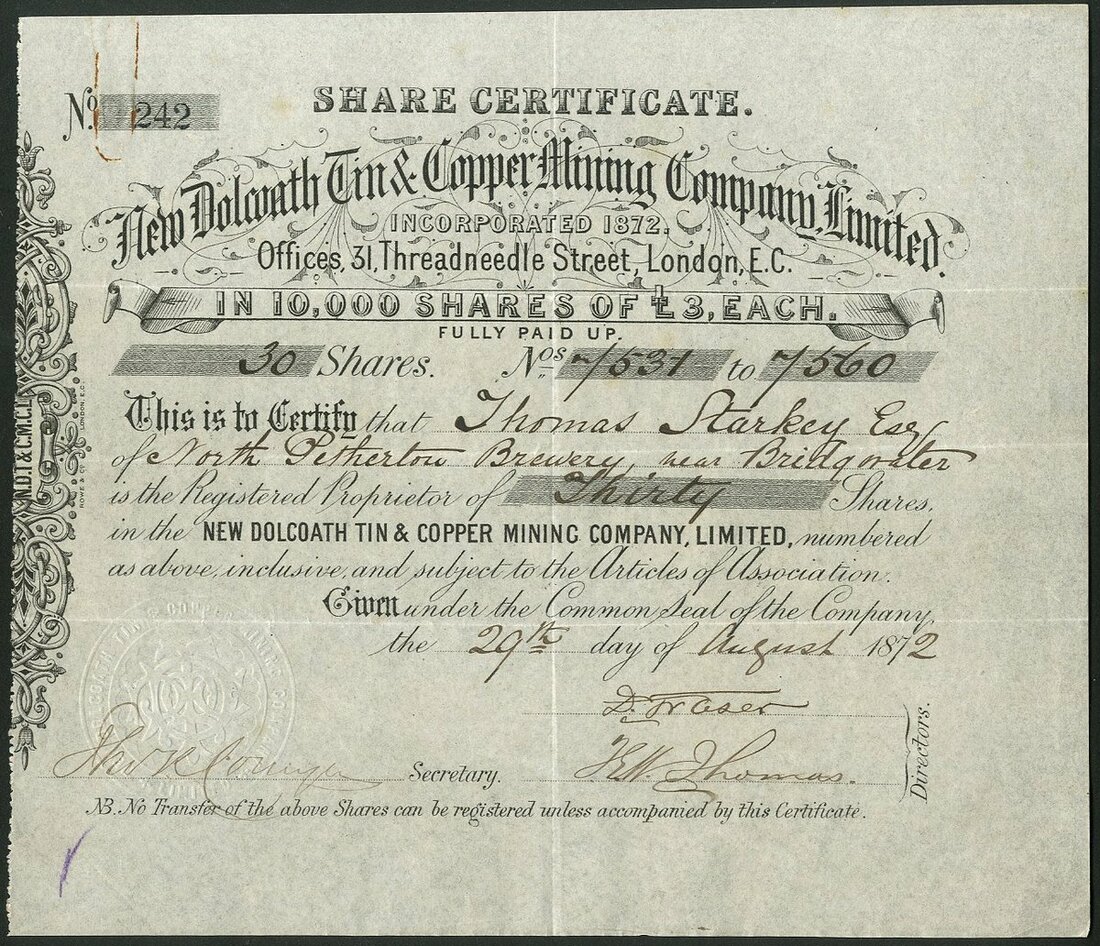 No. 242
SHARE CERTIFICATE.
New Dolcoath Tin & Copper Mining Company, Limited.
INCORPORATED 1872.
Offices, 31, Threadneedle Street, London, E.C.
IN 10,000 SHARES OF £3, EACH.
FULLY PAID UP.
30 Shares. Nos. 7531 to 7560
This is to Certify that Thomas Starkey Esq
of North Petherton Brewery, near Bridgwater
is the Registered Proprietor of Thirty Shares,
in the NEW DOLCOATH TIN & COPPER MINING COMPANY, LIMITED, numbered
as above, inclusive, and subject to the Articles of Association.
Given under the Common Seal of the Company,
the 29th day of August 1872
D. Fraser
Secretary.
Thomas.
Directors.
NB. No Transfer of the above Shares can be registered unless accompanied by this Certificate.
N.D.T & C.M.C.L.
LONDON E.C.